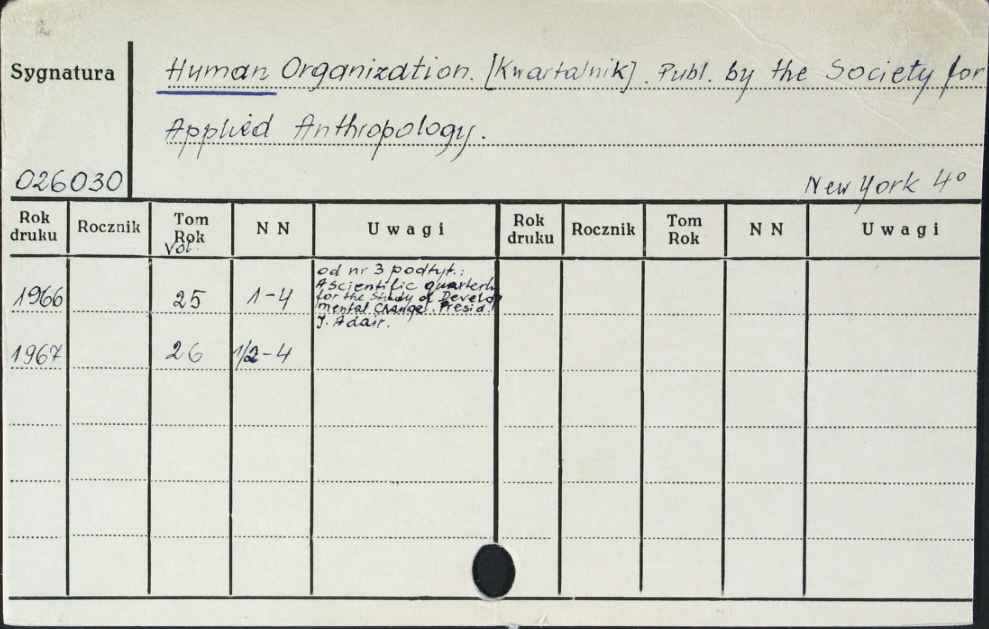 Sygnatura
Human Organization. [Kwartalnik]. Publ. by the Society for
Applied Anthropology.
026030
New York 4°
Rok druku Rocznik Tom Rok Vol. N N Uwagi Rok druku Rocznik Tom Rok N N Uwagi
1966 25 1-4 od nr 3 podtyt.:
A scientific quarterly
for the Study of Develop
mental Change. Presid.
J. Adair.
1967 26 1/2-4